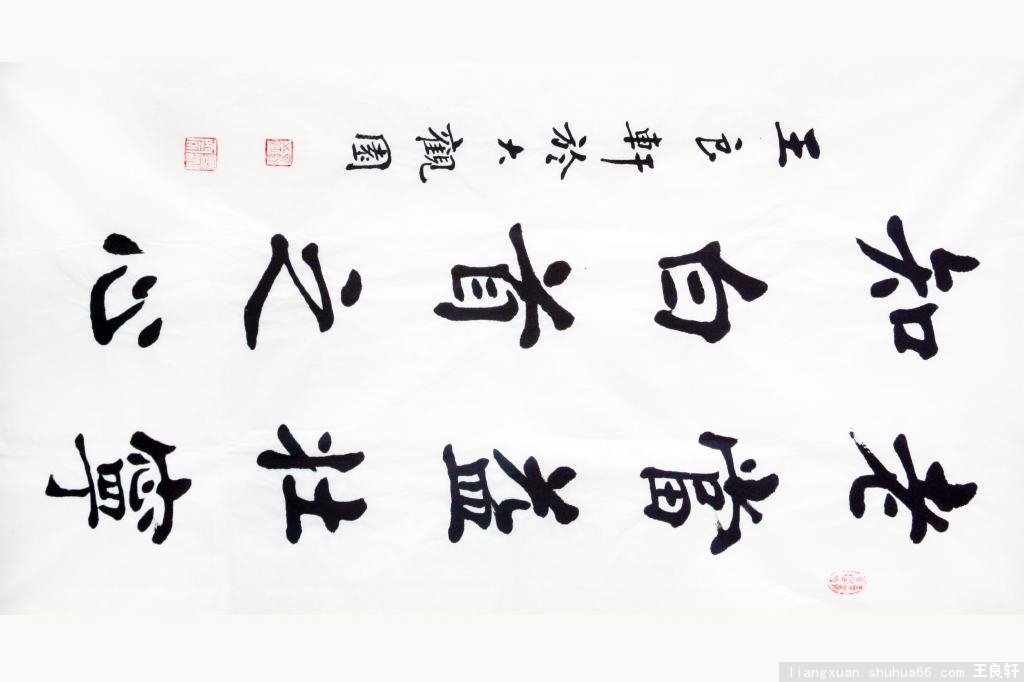 老當益壯寧
知白首之心
王良軒於大觀園
liangxuan.shuhua66.com 王良轩